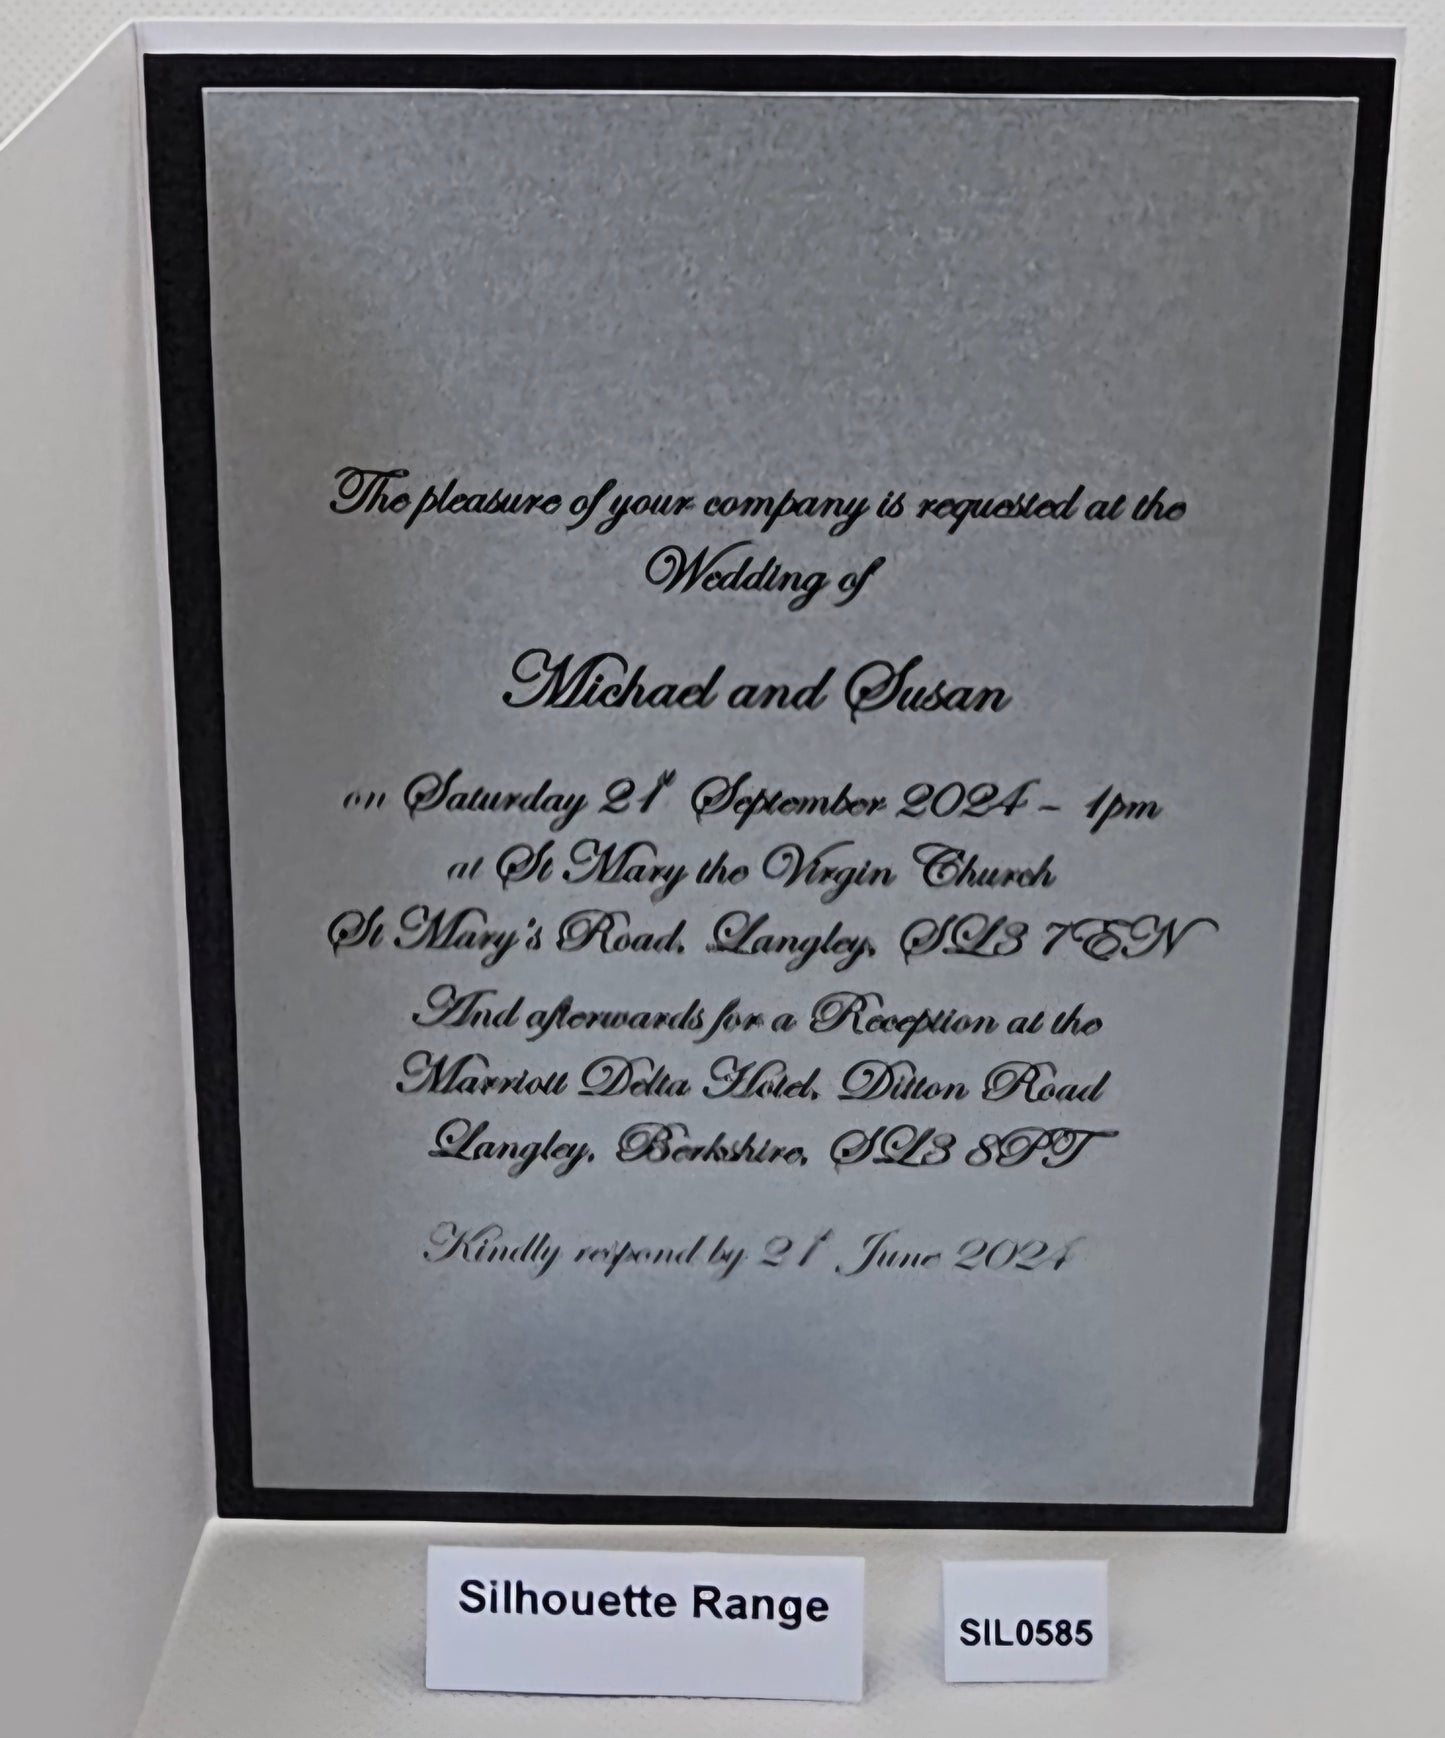 The pleasure of your company is requested at the
Wedding of
Michael and Susan
on Saturday 21st September 2024 - 1pm
at St Mary the Virgin Church
St Mary's Road, Langley, SL3 7EN
And afterwards for a Reception at the
Marriott Delta Hotel, Ditton Road
Langley, Berkshire, SL3 8PT
Kindly respond by 21st June 2024
Silhouette Range
SIL0585